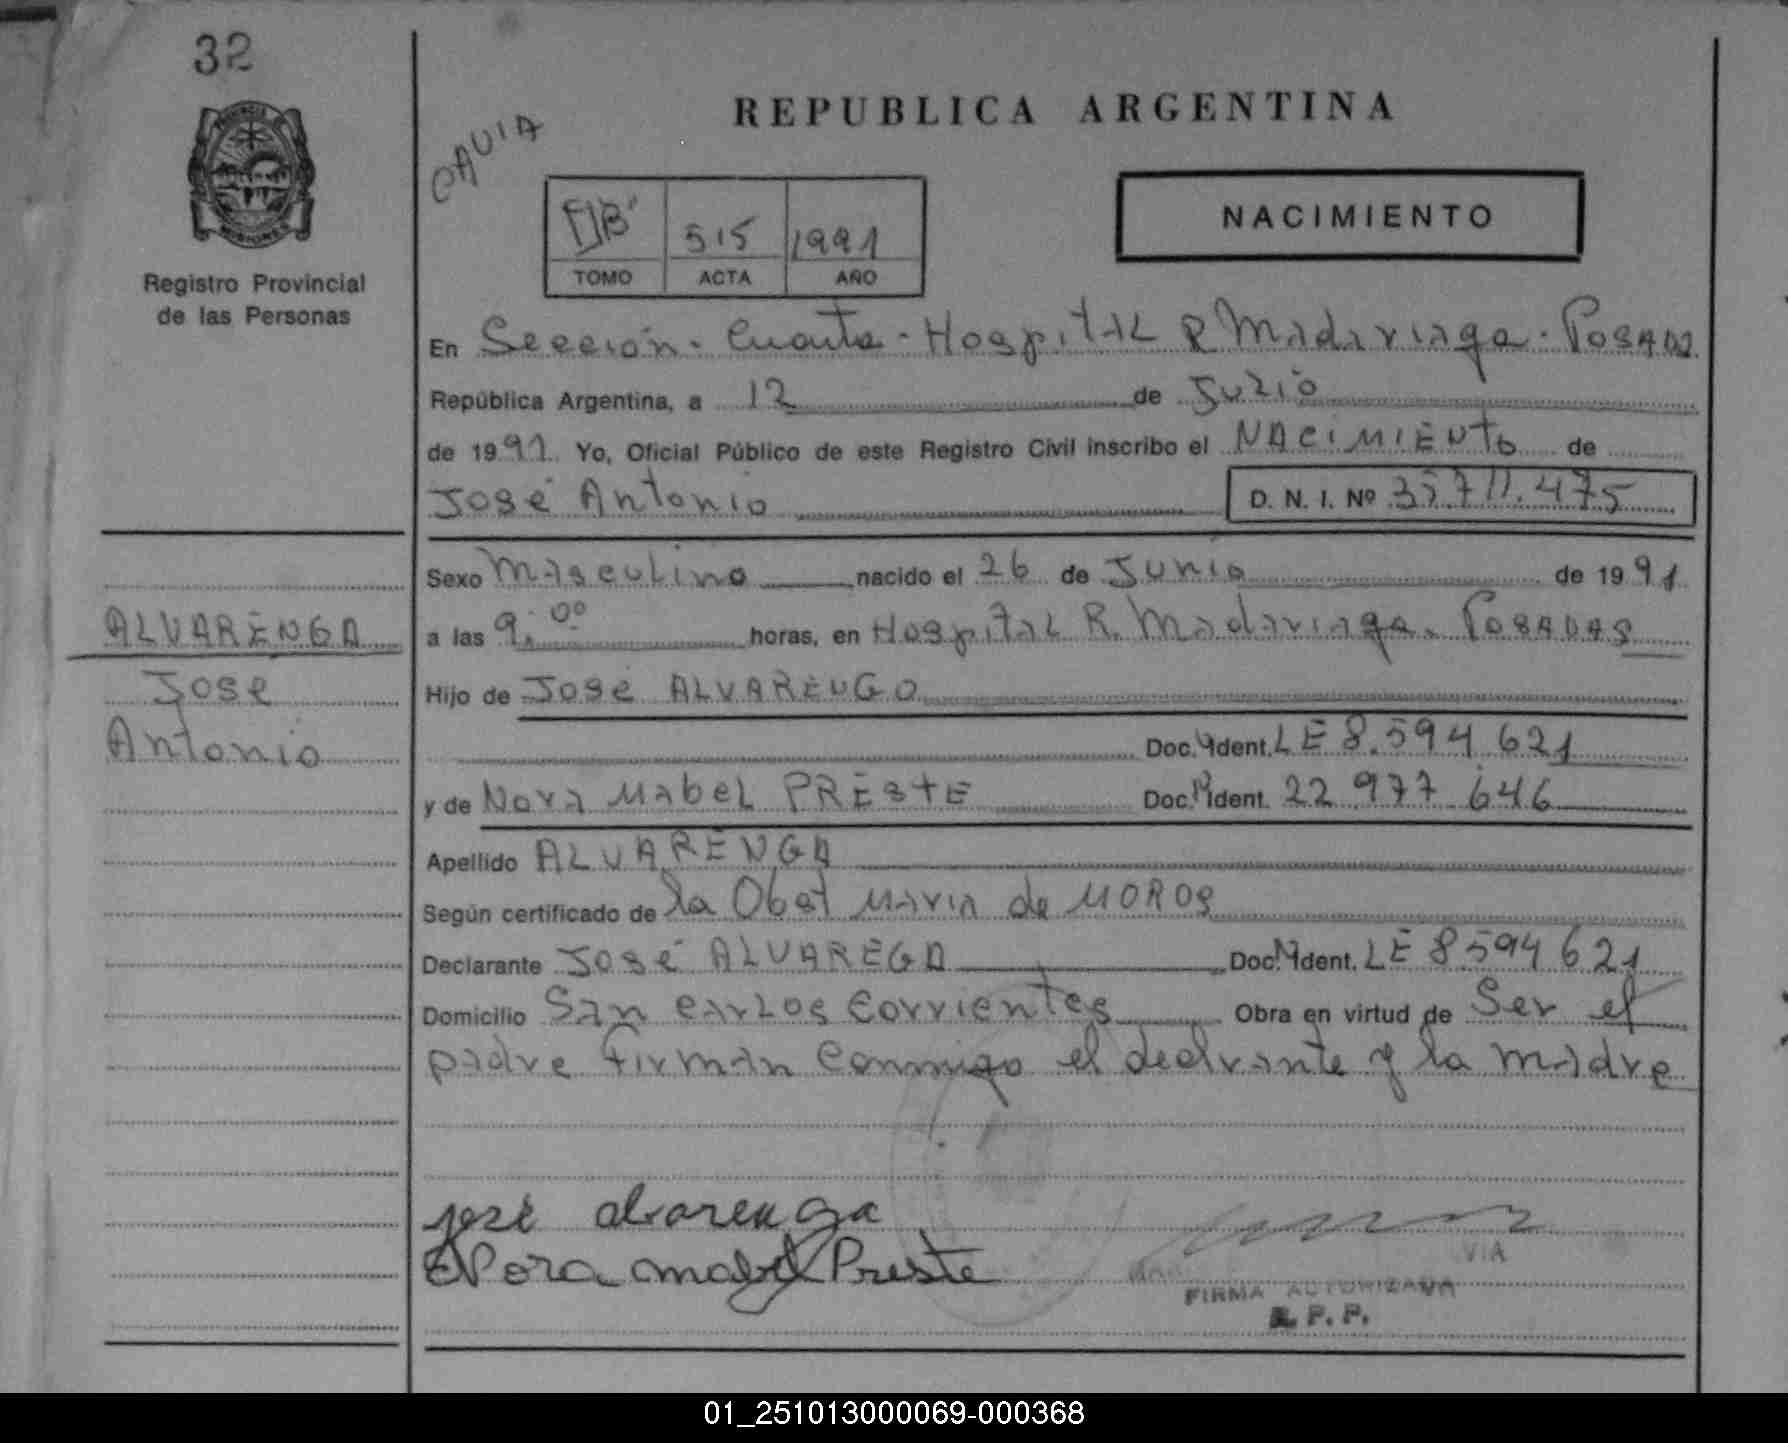 32
REPUBLICA ARGENTINA
CAVIA
NACIMIENTO
515 1991
TOMO ACTA AÑO
Registro Provincial
de las Personas
En Sección - Cuarta - Hospital R Madariaga - Posadas
República Argentina, a 12 de Julio
de 1991 Yo, Oficial Público de este Registro Civil inscribo el NACIMIENTO de
José Antonio D. N. I. Nº 35.711.475
Sexo Masculino nacido el 26 de Junio de 1991
ALVARENGA
a las 9:00 horas, en Hospital R. Madariaga. Posadas
Jose
Hijo de José ALVARENGO
Antonio
Doc. Ident. LE 8.594 621
y de Nora Mabel PRESTE Doc. Ident. 22 977 646
Apellido ALVARENGA
Según certificado de la Obst Maria de MOROS
Declarante José ALVAREGA Doc. Ident. LE 8594 621
Domicilio San Carlos Corrientes Obra en virtud de Ser el
padre Firman Conmigo el declrante y la madre
josé alvarenga
Nora mabel Preste
VIA
FIRMA AUTORIZADA
R. P. P.
01_251013000069-000368